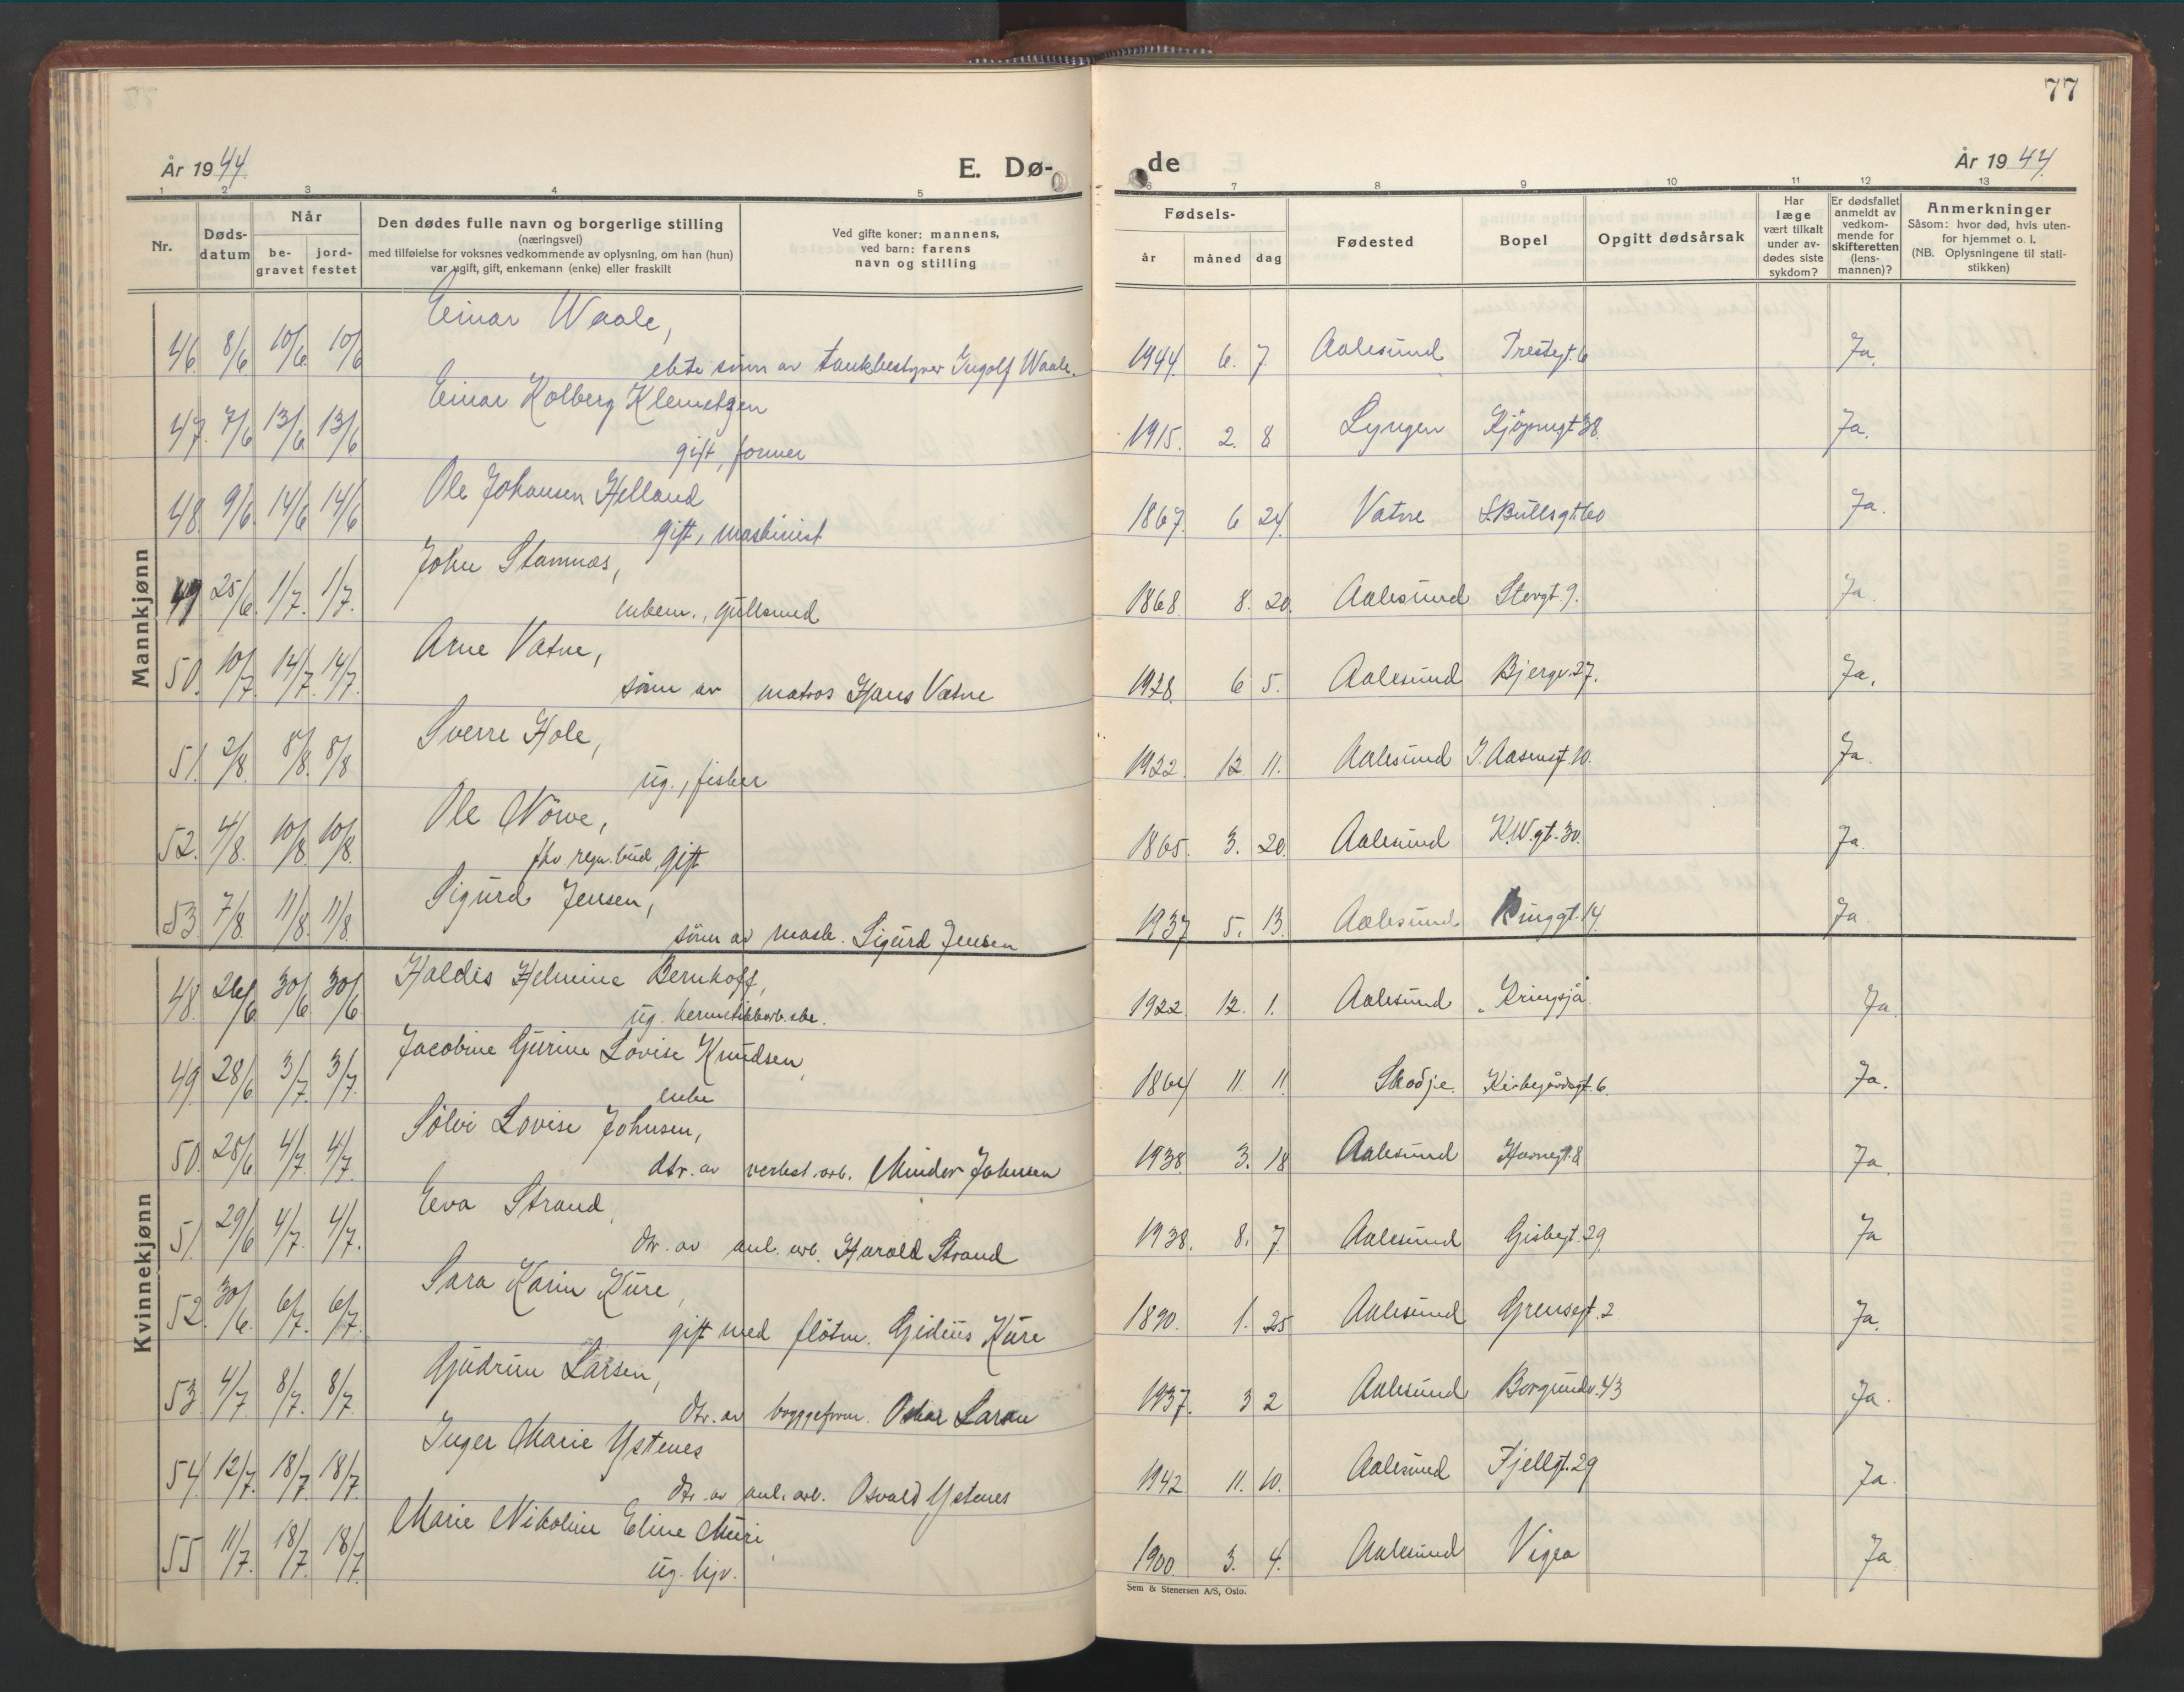 77
År 1944. E. Dø-
de År 1944.
1 2 3 4 5
6 7 8 9 10 11 12 13
Nr. Døds-datum Når be-gravet jord-festet Den dødes fulle navn og borgerlige stilling (næringsvei) med tilføielse for voksnes vedkommende av oplysning, om han (hun) var ugift, gift, enkemann (enke) eller fraskilt Ved gifte koner: mannens, ved barn: farens navn og stilling
Fødsels- år måned dag Fødested Bopel Opgitt dødsårsak Har læge vært tilkalt under av-dødes siste sykdom? Er dødsfallet anmeldt av vedkom-mende for skifteretten (lens-mannen)? Anmerkninger Såsom: hvor død, hvis uten-for hjemmet o. l. (NB. Oplysningene til stati-stikken)
Mannkjønn
Einar Waale,
46. 8/6 10/6 10/6 ekte sönn av tankbestyrer Ingolf Waale. 1944. 6. 7. Aalesund Prestegt. 6 Ja.
Einar Kolberg Klemetsen
47. 7/6 13/6 13/6 gift, former 1915. 2. 8 Lyngen Kjöpmgt 38. Ja.
Ole Johansen Helland
48. 9/6 14/6 14/6 gift, maskinist 1867. 6 24. Vatne S.Bullsgt. 60 Ja.
John Stamnes,
49 25/6. 1/7. 1/7. enkem., gullsmed 1868. 8. 20. Aalesund Storgt. 9. Ja.
Arne Vatne,
50. 10/7. 14/7. 14/7. sönn av matros Hans Vatne 1928. 6 5. Aalesund Bjergv. 27. Ja.
Sverre Hole,
51. 2/8. 8/8. 8/8 ug., fisker 1922. 12 11. Aalesund I. Aasensgt. 10. Ja.
Ole Nörve,
52. 4/8. 10/8. 10/8. fhv regn.bud, gift 1865. 3. 20. Aalesund K.W.gt. 30. Ja.
Sigurd Jensen,
53 7/8. 11/8. 11/8. sönn av mask. Sigurd Jensen 1937 5. 13. Aalesund Ringgt. 14. Ja.
Kvinnekjønn
Haldis Helmine Bernhoff,
48. 26/6 30/6 30/6 ug. hermetikkarb.ske. 1922. 12. 1. Aalesund "Kringsjå Ja.
Jacobine Gurine Lovise Knudsen,
49. 28/6 3/7. 3/7. enke 1864 11. 11. Skodje. Kirkegårdsgt. 6. Ja.
Sölvi Lovise Johnsen,
50. 28/6 4/7. 4/7. dtr. av verkst.arb. Minder Johnsen 1938. 3. 18 Aalesund Havnegt. 8 Ja.
Eva Strand,
51. 29/6 4/7. 4/7. dtr. av anl. arb. Harald Strand 1938. 8. 7. Aalesund Giskegt. 29. Ja
Sara Karin Kure,
52. 30/6. 6/7. 6/7. gift med flötm. Gideüs Kure 1890. 1. 25 Aalesund Grensegt. 2 Ja.
Gudrun Larsen,
53 4/7. 8/7. 8/7. dtr. av byggeform. Oskar Larsen 1937. 3 2 Aalesund Borgundv. 43 Ja.
Inger Marie Ystenes
54. 12/7. 18/7. 18/7. dtr. av anl. arb. Osvald Ystenes 1942. 11. 10. Aalesund Fjellgt. 29 Ja.
Marie Nikoline Eline Muri,
55 11/7. 18/7. 18/7. ug. hjv. 1900 3. 4. Aalesund Vigra Ja
Sem & Stenersen A/S, Oslo.